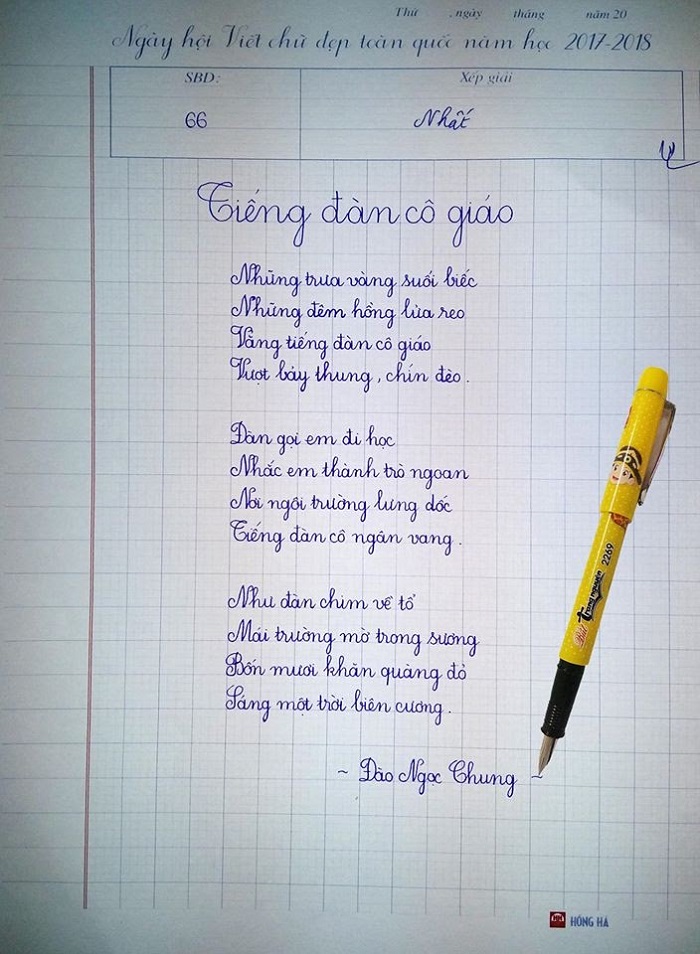 Thứ , ngày tháng năm 20
Ngày hội Viết chữ đẹp toàn quốc năm học 2017-2018
SBD: Xếp giải
66 Nhất
Tiếng đàn cô giáo
Những trưa vàng suối biếc
Những đêm hồng lửa reo
Vẳng tiếng đàn cô giáo
Vượt bảy thung, chín đèo.
Đàn gọi em đi học
Nhắc em thành trò ngoan
Nơi ngôi trường lưng dốc
Tiếng đàn cô ngân vang.
Như đàn chim về tổ
Mái trường mờ trong sương
Bốn mươi khăn quàng đỏ
Sáng một trời biên cương.
~ Đào Ngọc Chung ~
Bút Trung nguyên 2269
HỒNG HÀ